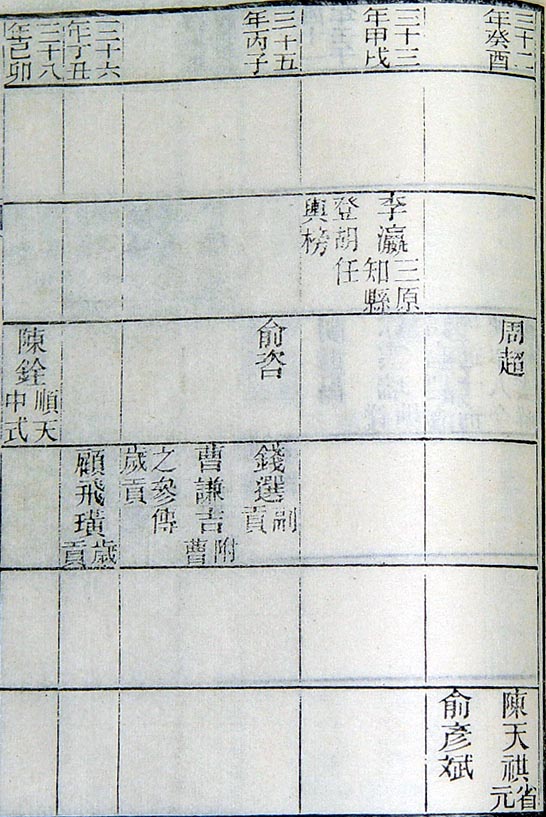 三十二年癸酉
三十三年甲戌
三十五年丙子
三十六年丁丑
三十八年己卯
李瀛三原知縣
登胡任
輿榜
周超
俞咨
陳銓順天中式
錢選副貢
曹謙吉附曹
之參傳
歲貢
顧飛璜歲貢
陳天祺省元
俞彥斌